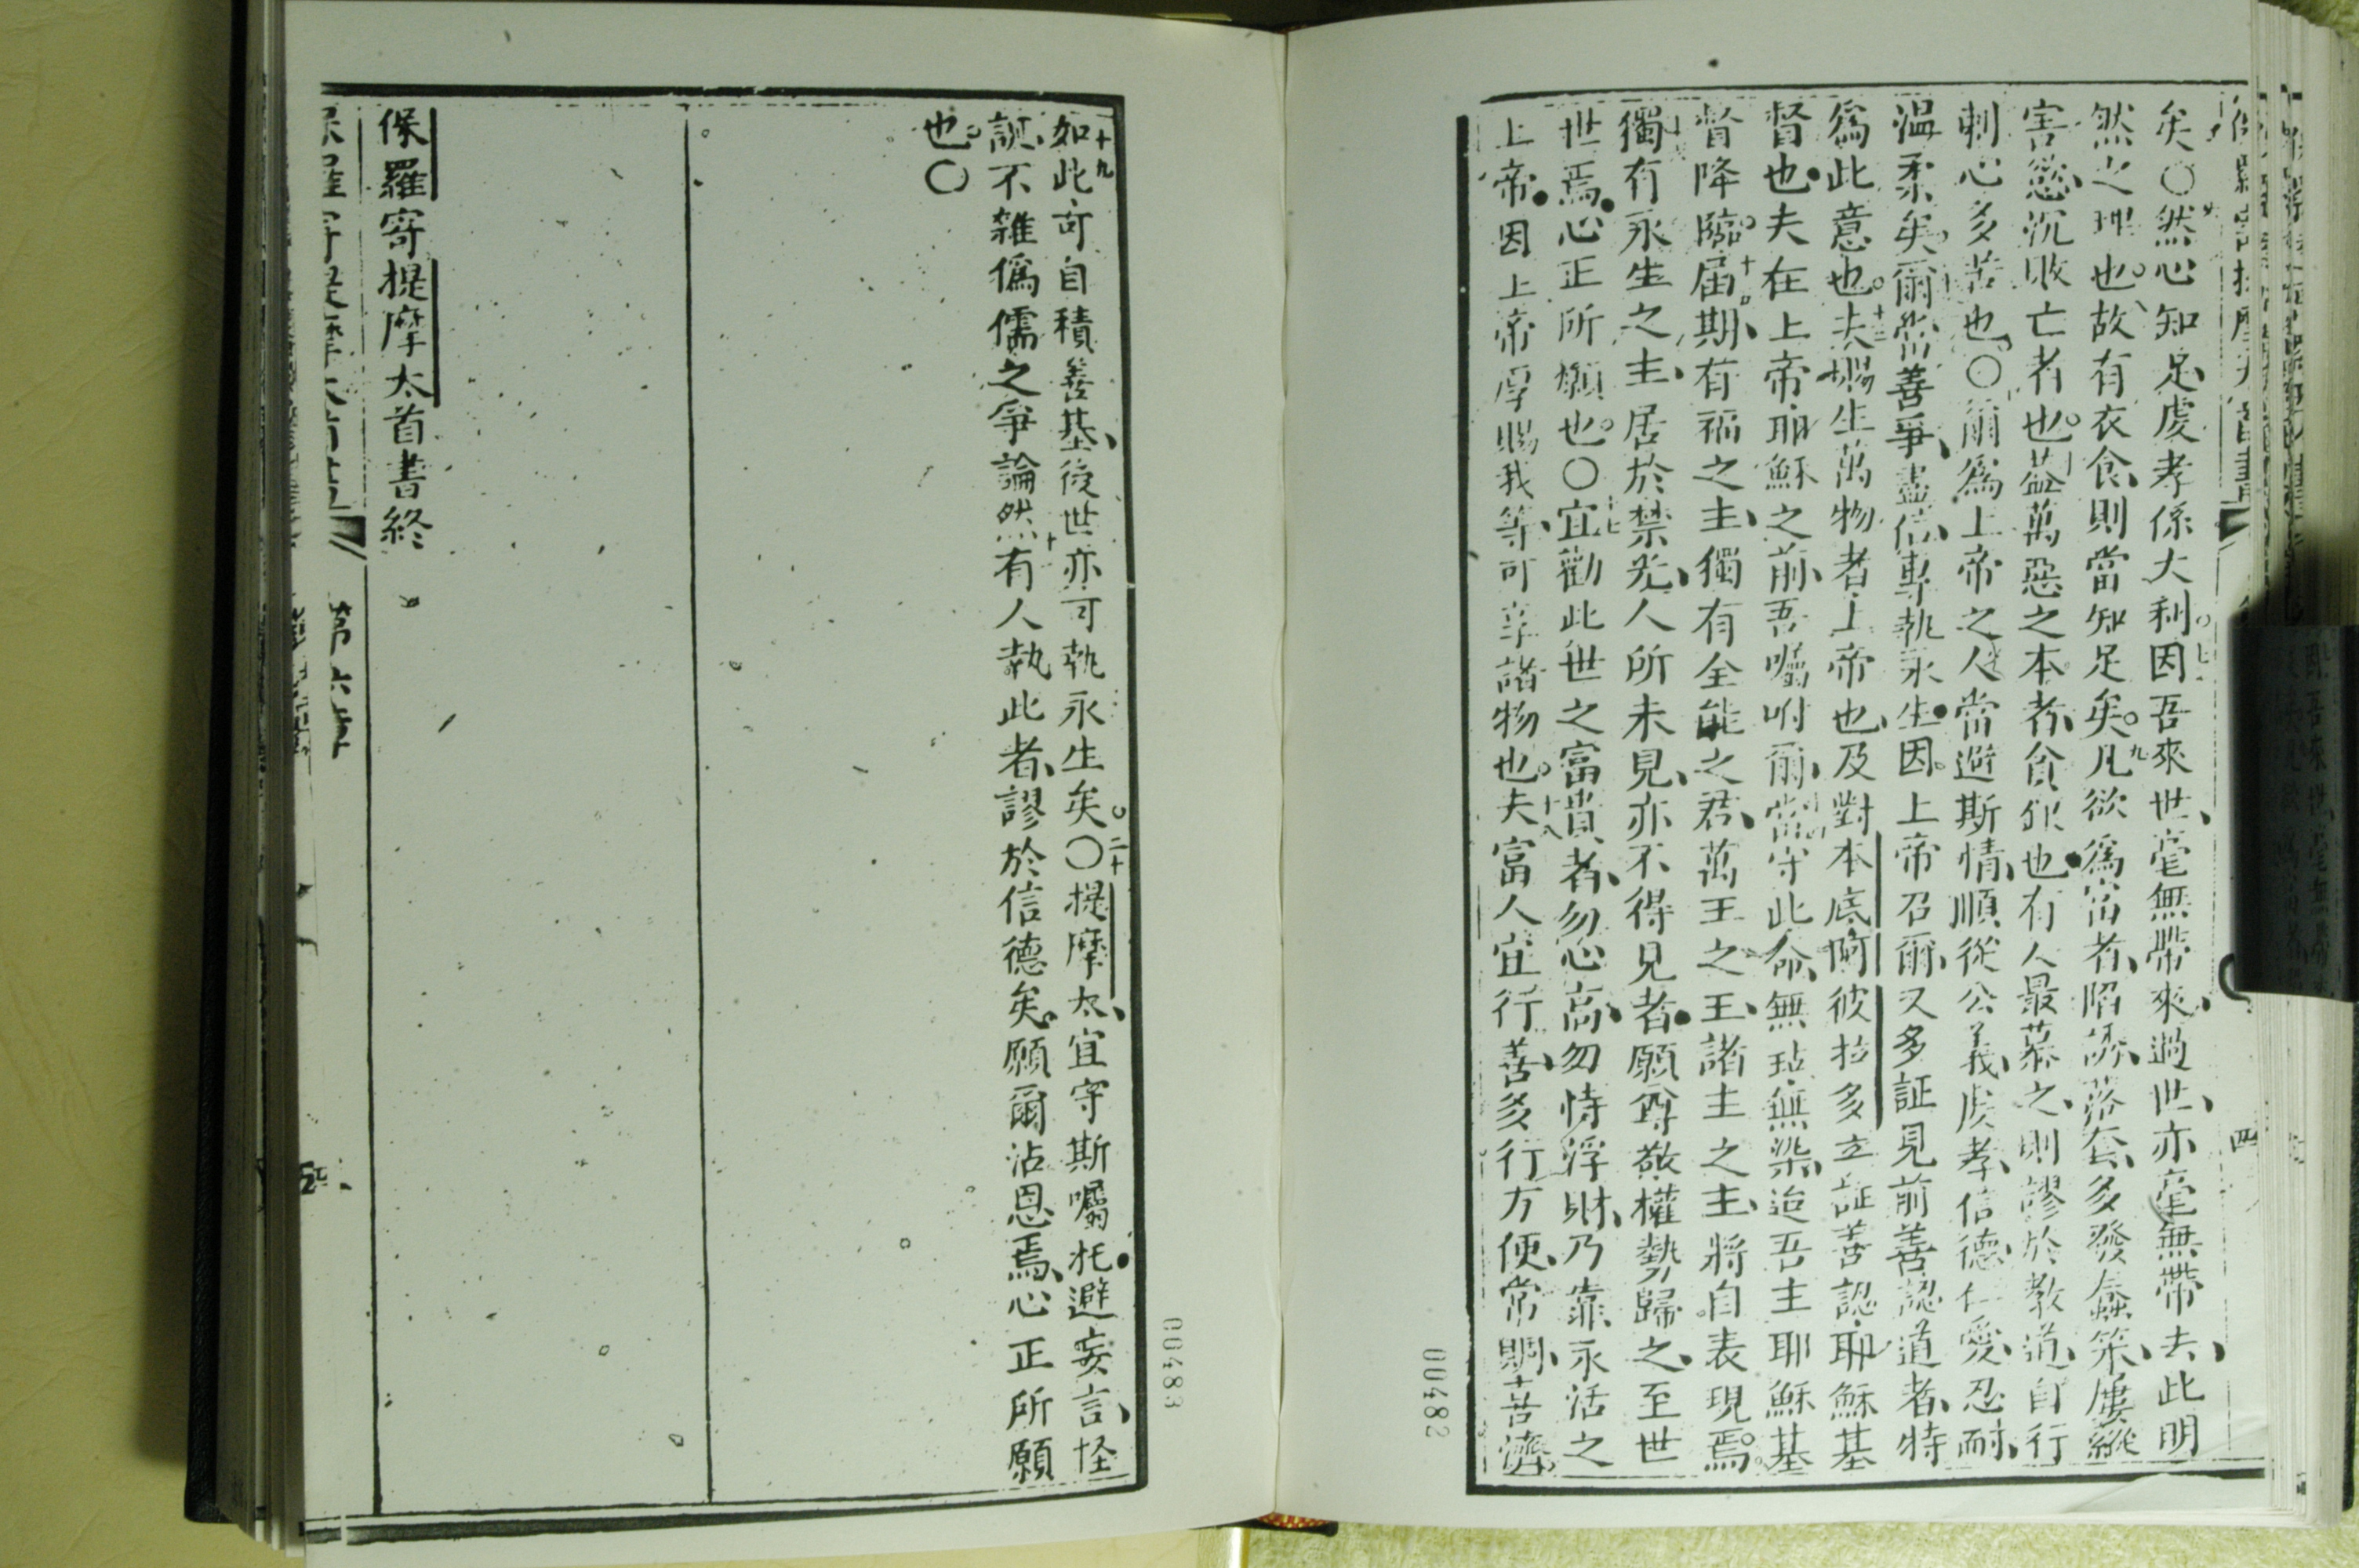 矣〇然心知足、虔孝係大利。因吾來世、毫無帶來過世、亦毫無帶去、此明
然之理也。故有衣食、則當知足矣。九凡欲爲富者、陷誘、落套、多發蠢笨、屢縱
害慾、沉敗亡者也。蓋萬惡之本者、貪銀也•有人最慕之、則謬於教道、自行
刺心多苦也。〇爾爲上帝之人、當避斯情、順從公義、虔孝、信德、仁愛、忍耐、
溫柔矣。爾當善爭、盡信、專執永生•因上帝召爾、又多証見前善認道者、特
爲此意也。十三夫賜生萬物者、上帝也、及對本底阿彼拉多立証善認、耶穌基
督也•夫在上帝耶穌之前、吾囑咐爾、當守此命、無玷、無染、迨吾主耶穌基
督降臨。屆期、有福之主、獨有全能之君、萬王之王、諸主之主、將自表現焉。
獨有永生之主、居於禁光、人所未見、亦不得見者•願尊敬權勢歸之、至世
世焉•心正所願也。〇十七宜勸此世之富貴者、勿心高、勿恃浮財、乃靠永活之
上帝•因上帝厚賜我等、可享諸物也。十八夫富人宜行善、多行方便、常賙善濟。
00482
十九如此可自積善基、後世亦可執永生矣。〇二十提摩太、宜守斯囑托•避妄言、怪
誕、不雜僞儒之爭論。然有人執此者、謬於信德矣。願爾沾恩焉、心正所願
也。〇
保羅寄提摩太首書終
第六章
00483